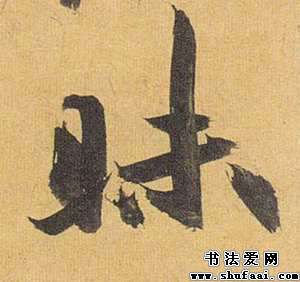 昧
书法爱网
www.shufaai.com